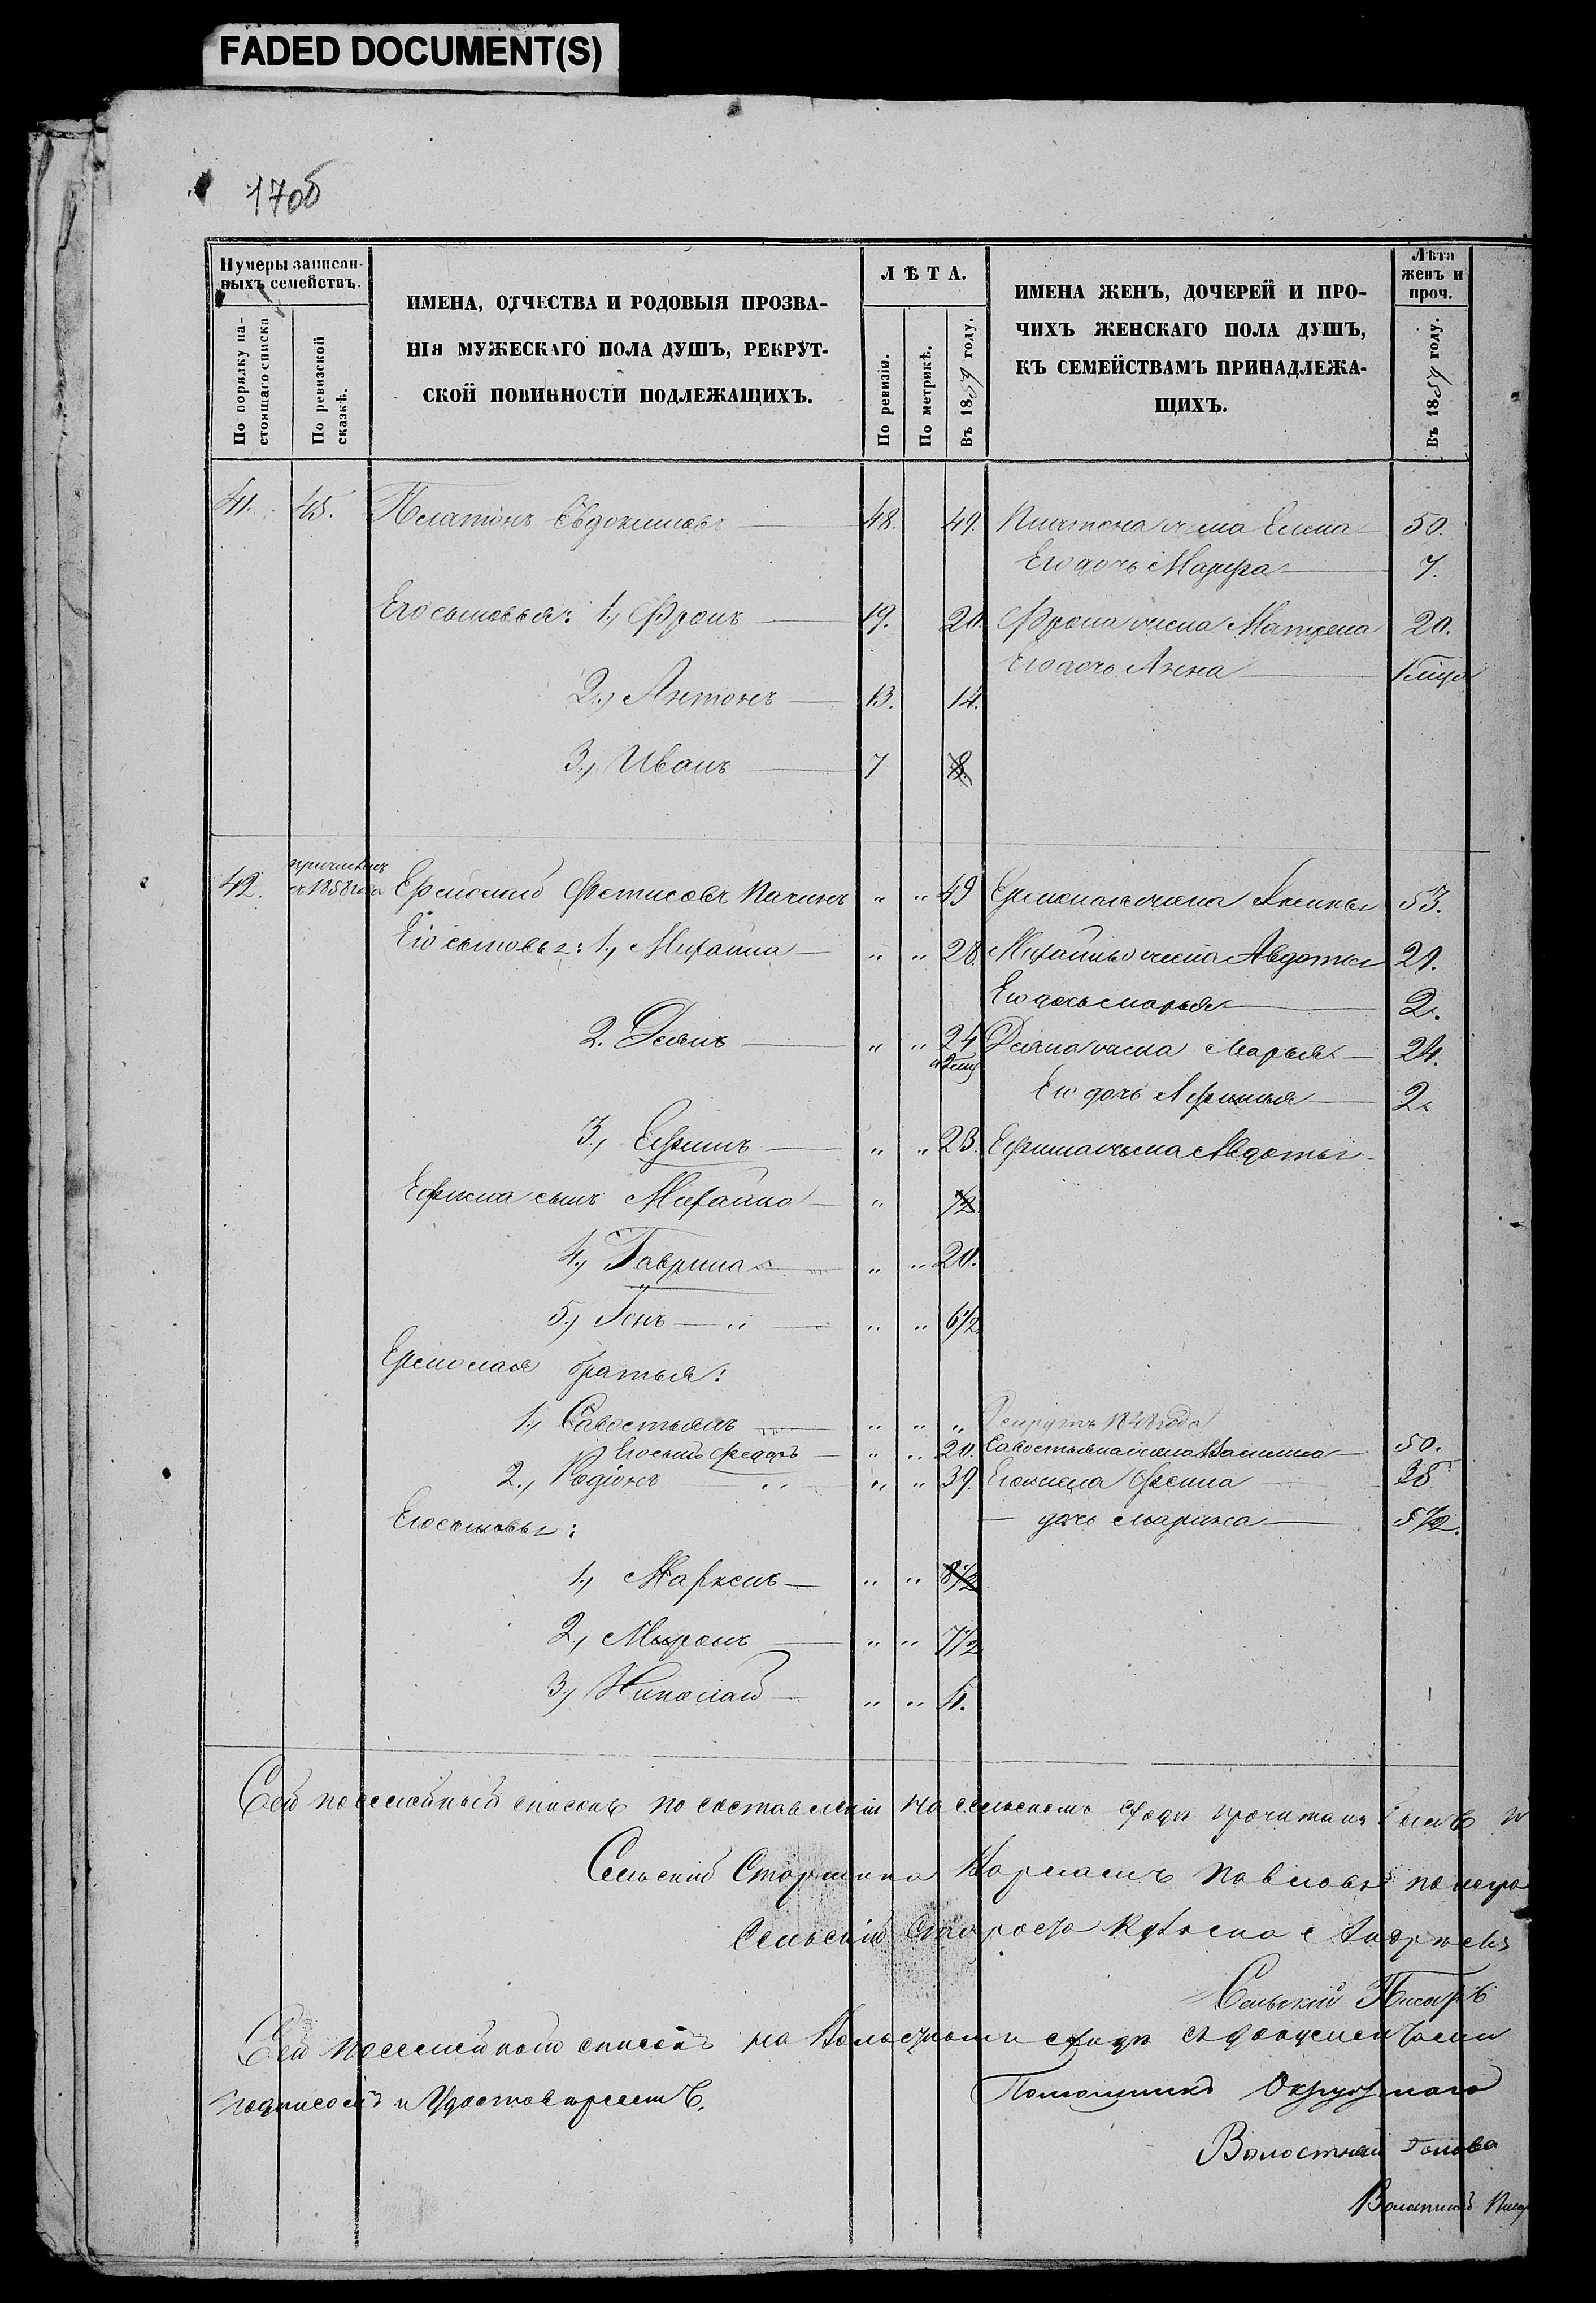 FADED DOCUMENT(S)
170б
Нумеры записан-
ныхъ семействъ.
По порядку на-
стоящаго списка
По ревизской
сказкѣ.
ИМЕНА, ОТЧЕСТВА И РОДОВЫЯ ПРОЗВА-
НІЯ МУЖЕСКАГО ПОЛА ДУШЪ, РЕКРУТ-
СКОЙ ПОВИННОСТИ ПОДЛЕЖАЩИХЪ.
ЛѢТА.
По ревизіи.
По метрикѣ.
Въ 1859 году.
ИМЕНА ЖЕНЪ, ДОЧЕРЕЙ И ПРО-
ЧИХЪ ЖЕНСКАГО ПОЛА ДУШЪ,
КЪ СЕМЕЙСТВАМЪ ПРИНАДЛЕЖА-
ЩИХЪ.
Лѣта
женъ и
проч.
Въ 1859 году.
41. 45. Платонъ Евдокимовъ 48. 49. Платона жена Елена 50.
Его дочь Марфа 7.
Его сыновья: 1., Фролъ 19. 20. Фрола жена Матрена 20.
Его дочь Анна
2., Антонъ 13. 14.
3., Иванъ 7 8.
42. причисленъ
съ 1858 года Ермолай Фетисовъ Пачинъ " " 49 Ермолая жена Аксинья 53.
Его сыновья: 1., Михайла " " 28. Михайлы жена Авдотья 29.
Его дочь Марья 2.
2. Демьянъ " " 24 Демьяна жена Марья 24.
Его дочь Афимья 2.
3., Ефимъ " " 23. Ефима жена Авдотья
Ефима сынъ Михайла " 1/2
4., Гаврила " " 20.
5., Іонъ " " 6 1/2
Ермолая братья:
1., Савостьянъ " " " Рекрутъ 1848 года
Его сынъ Федоръ " " 20. Савостьяна жена Василиса 50.
2., Родіонъ " " 39. Его жена Фекла 38
Его сыновья: дочь Марина 5 1/2.
1., Маркелъ " " 8 1/2
2., Миронъ " " 7 1/2
3., Николай " " 4.
Сей посемейный списокъ по составленіи на сельскомъ сходѣ прочитанъ былъ и
Сельскій Старшина Павловъ
Сельскій Староста Андреевъ
Сельскій Писарь
Сей посемейный списокъ на Волостномъ сходѣ съ документами
подписомъ и Удостовѣряемъ. Помощникъ Окружнаго
Волостной Голова
Волостной Писар